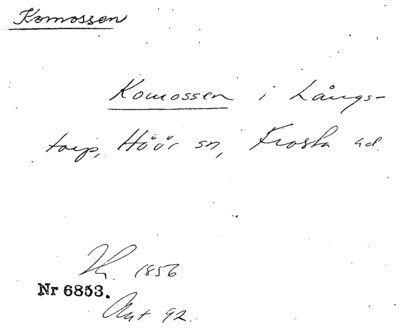 Komossen
Komossen i Långs-
torp, Höör sn, Frosta hd.
1856
Nr 6853.
Akt 92.